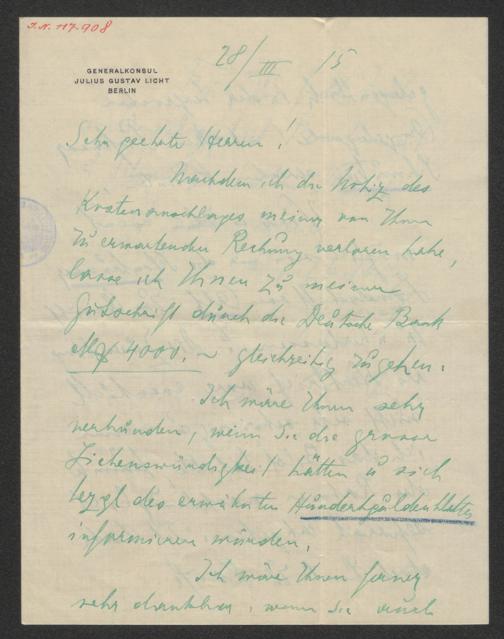 I.N. 117.908
GENERALKONSUL
JULIUS GUSTAV LICHT
BERLIN
28/III 15
Sehr geehrte Herren!
Nachdem ich die Notiz des
Kostenanschlages meiner von Ihnen
zu erwartenden Rechnung verloren habe,
lasse ich Ihnen zu meiner
Gutschrift durch die Deutsche Bank
M 4000.– gleichzeitig zugehen.
Ich wäre Ihnen sehr
verbunden, wenn Sie die grosse
Liebenswürdigkeit hätten u sich
bezgl des erwähnten Hundertguldenblattes
informieren würden.
Ich wäre Ihnen ferner
sehr dankbar, wenn Sie auch